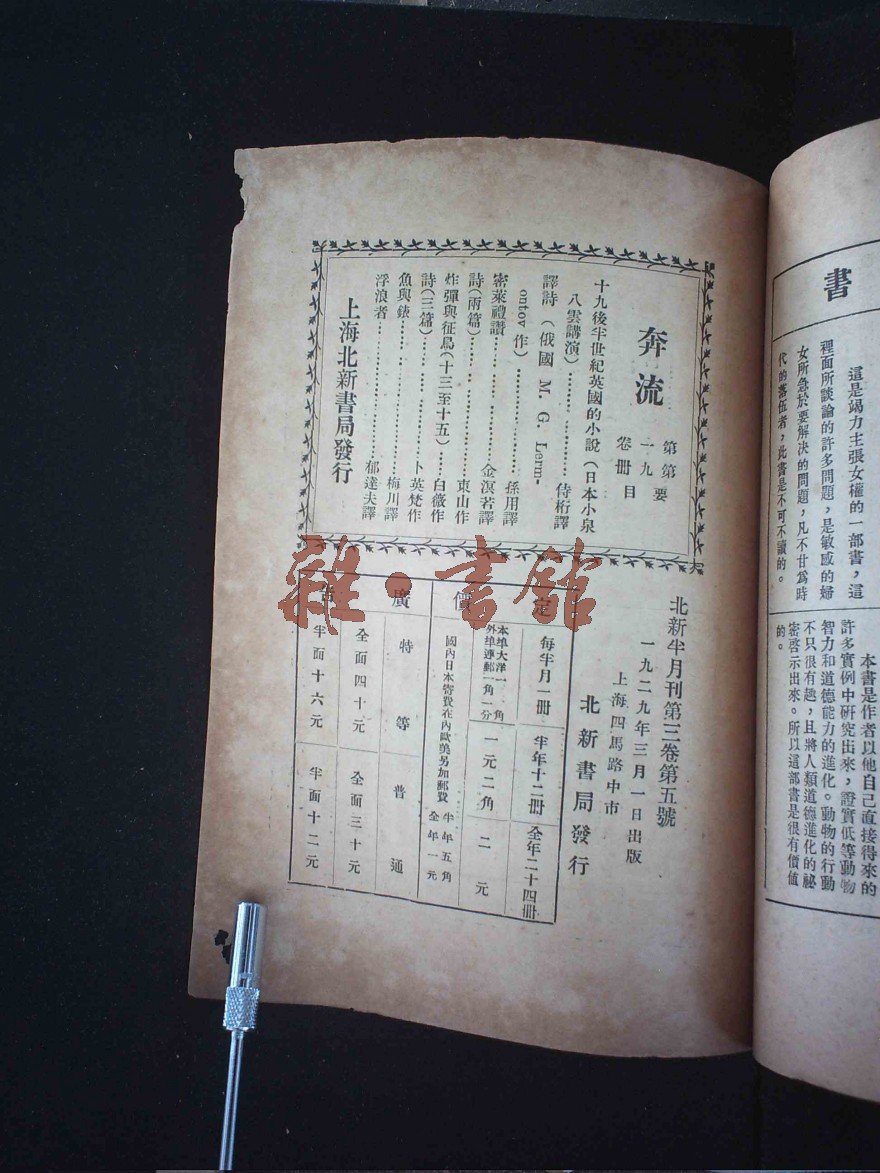 書
這是竭力主張女權的一部書，這
裡面所談論的許多問題，是敏感的婦
女所急於要解决的問題，凡不甘爲時
代的落伍者，此書是不可不讀的。
本書是作者以他自己直接得來的
許多實例中研究出來，證實低等動物
智力和道德能力的進化。動物的行動
不只很有趣，且將人類道德進化的祕
密啓示出來。所以這部書是很有價値
的。
奔流
第一卷
第九册
要目
十九後半世紀英國的小說（日本小泉
八雲講演）…………………侍桁譯
譯詩（俄國 M. G. Lerm-
ontov 作）…………………孫用譯
密萊禮讚…………………金溟若譯
詩（兩篇）…………………東山作
炸彈與征鳥（十三至十五）……白薇作
詩（三篇）…………………卜英梵作
魚與錶…………………梅川譯
浮浪者…………………郁達夫譯
上海北新書局發行
北新半月刊第三卷第五號
一九二九年三月一日出版
上海四馬路中市
北新書局發行
定價
每半月一册 半年十二册 全年二十四册
本埠大洋一角 外埠連郵一角一分 一元二角 二元
國內日本寄費在內歐美另加郵費 半年五角 全年一元
廣
特等 普通
全面四十元 全面三十元
半面十六元 半面十二元
雜·書館